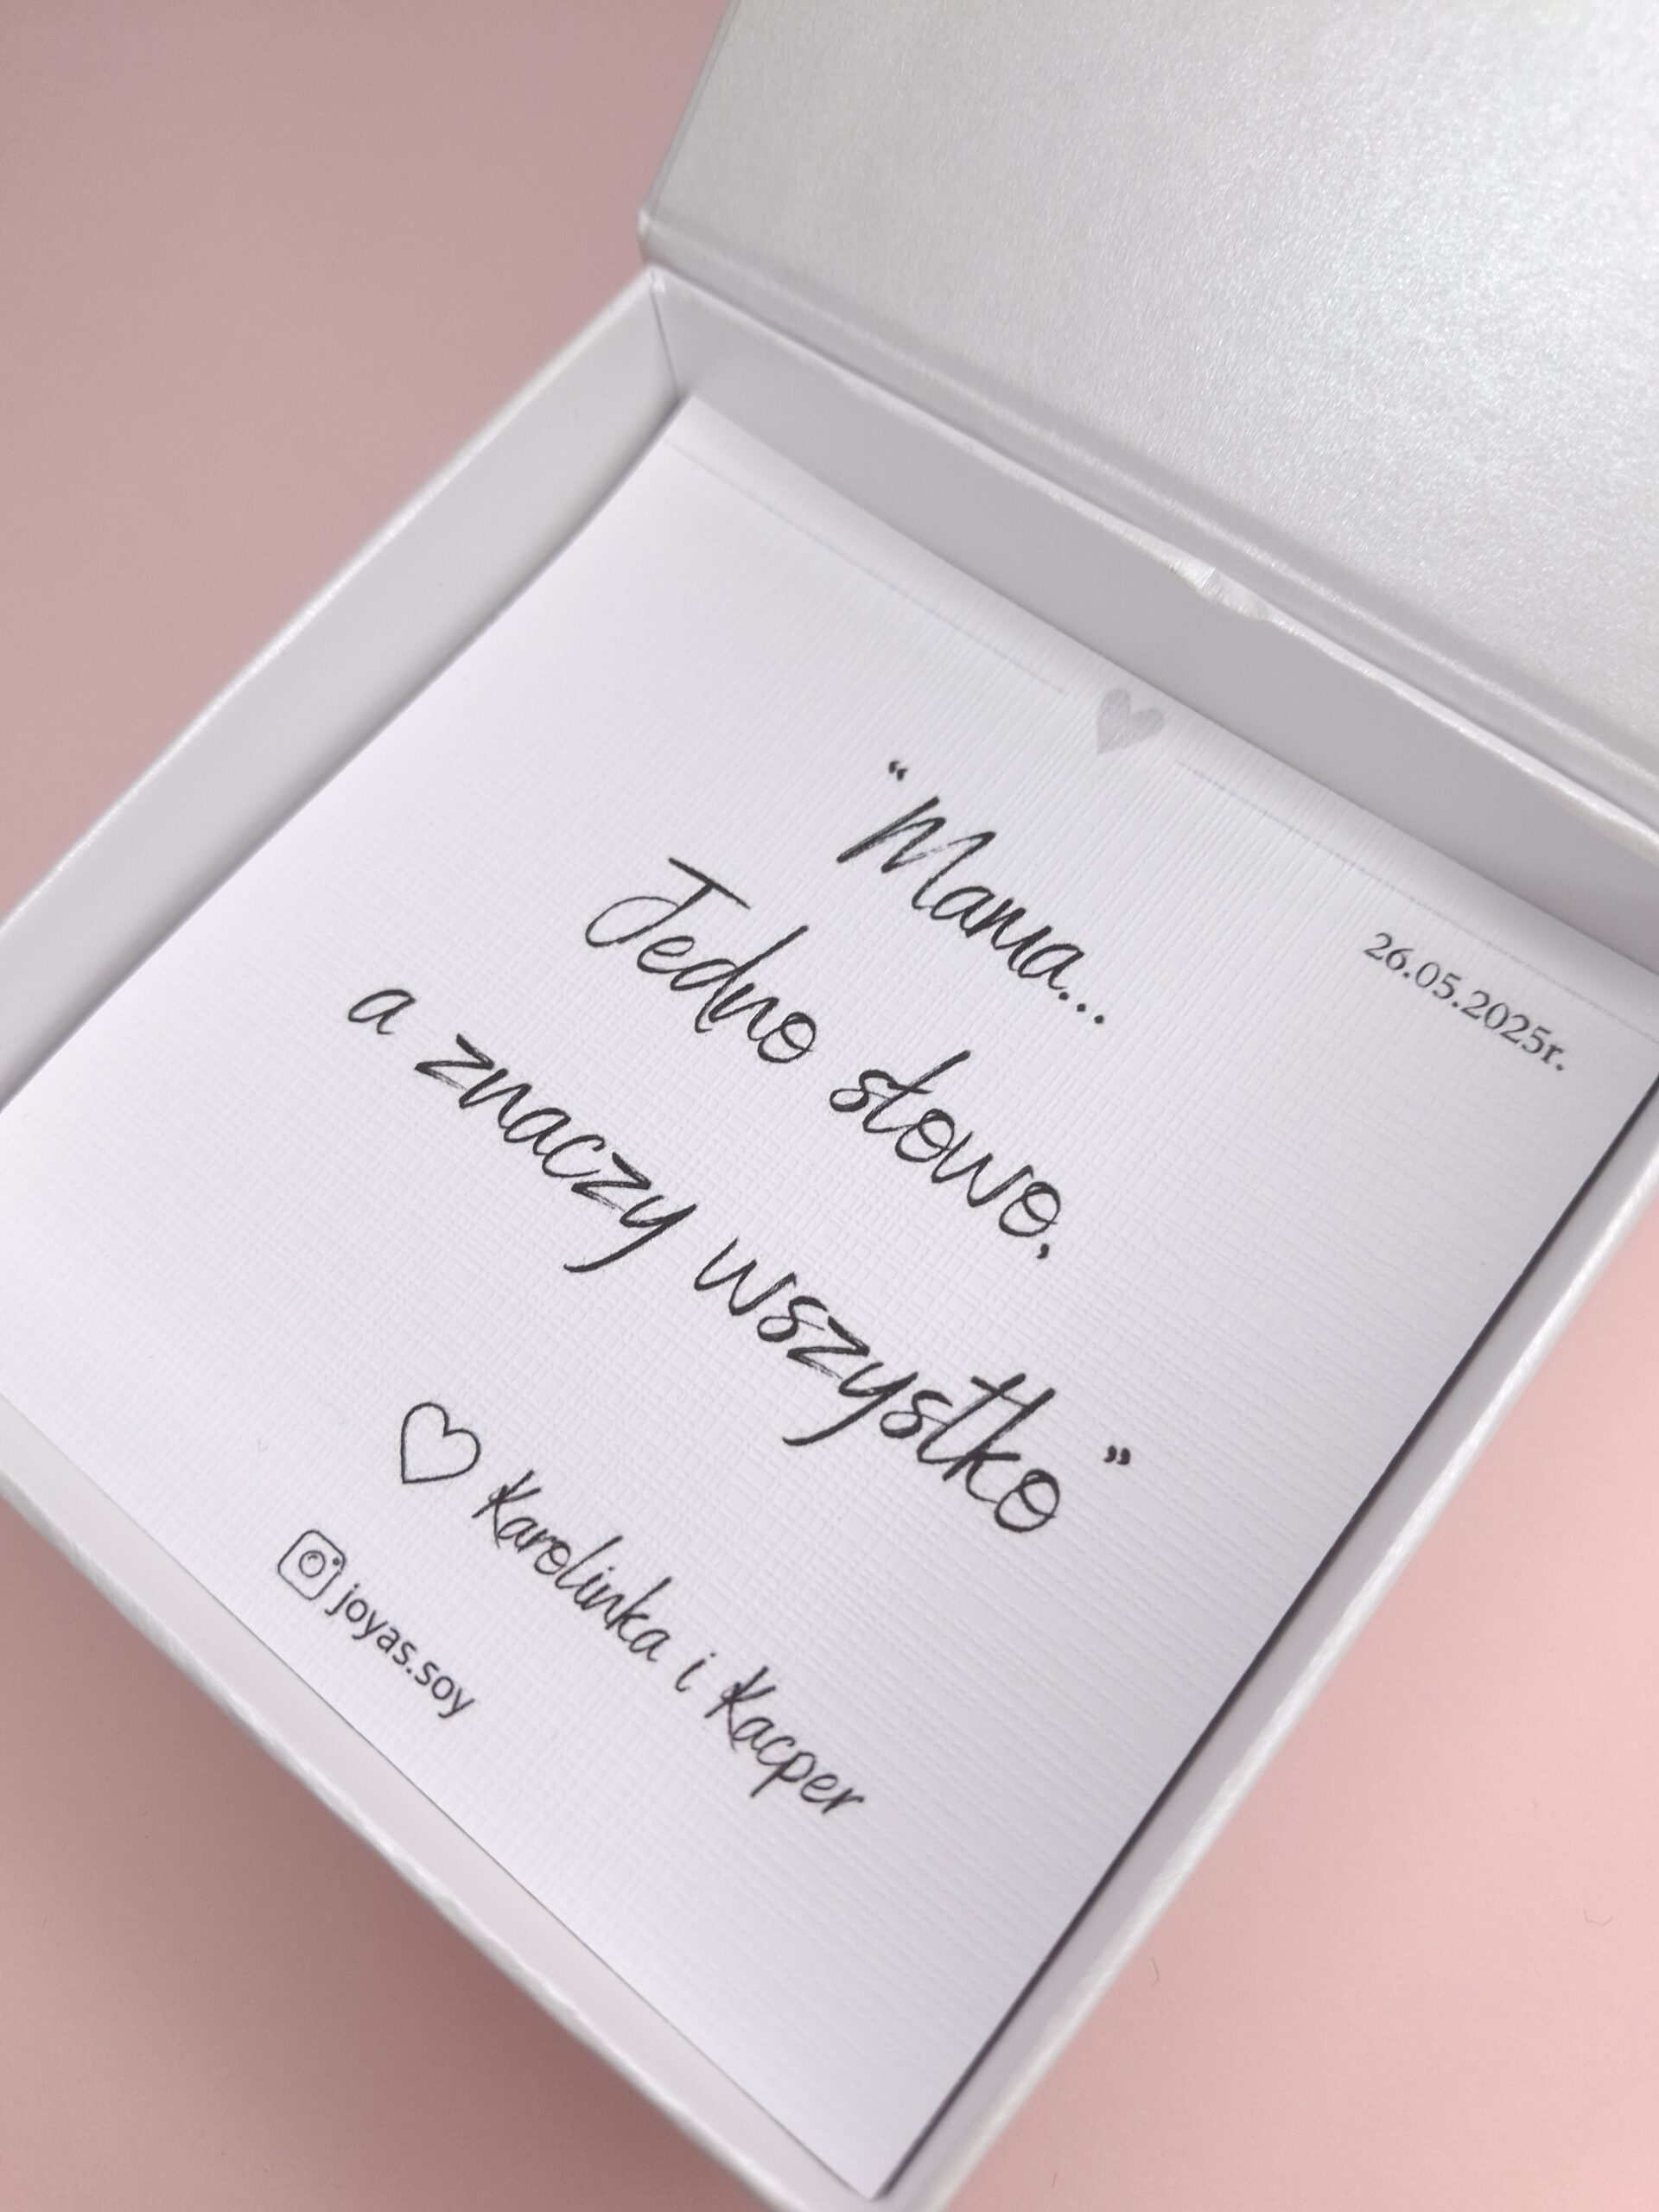 26.05.2025r.
“Mama...
Jedno słowo,
a znaczy wszystko”
♡ Karolinka i Kacper
joyas.soy